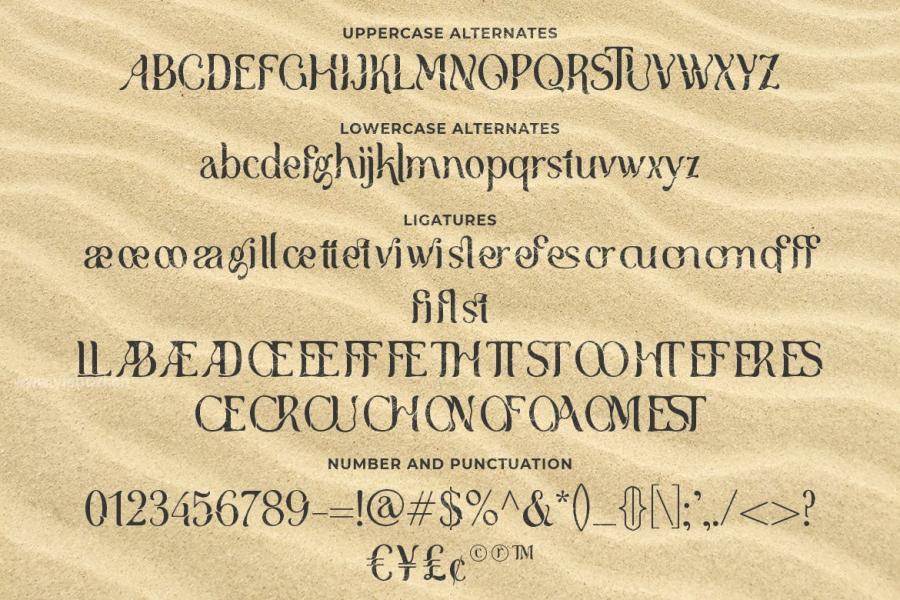 UPPERCASE ALTERNATES
ABCDEFGHIJKLMNOPQRSTUVWXYZ
LOWERCASE ALTERNATES
abcdefghijklmnopqrstuvwxyz
LIGATURES
æ œ oo aa gi ll ce tt et vi wi sl er ef es cr cu on om of ff
fi fl st
LL AB Æ AD Œ EE FF FE TH TT ST OO HT EF ER ES
CE CR OU CH ON OF OA OM EST
NUMBER AND PUNCTUATION
0123456789-=!@#$%^&*()_{}[\];',./<>?
€¥£¢©®™